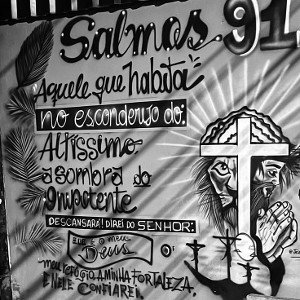 Salmos 91
Aquele que habita
no esconderijo do:
Altíssimo
à sombra do
Onipotente
DESCANSARÁ! DIREI DO SENHOR:
Ele é o meu
Deus
meu refúgio, A minha FORTALEZA,
E NELE CONFIAREI.